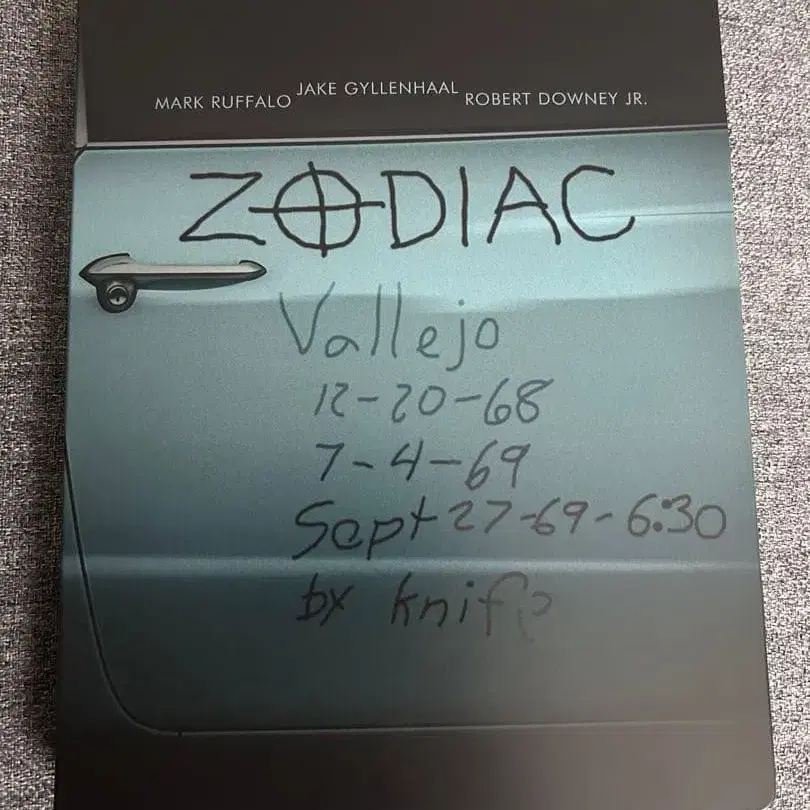 MARK RUFFALO JAKE GYLLENHAAL ROBERT DOWNEY JR.
ZODIAC
Vallejo
12-20-68
7-4-69
Sept 27-69-6:30
by knife